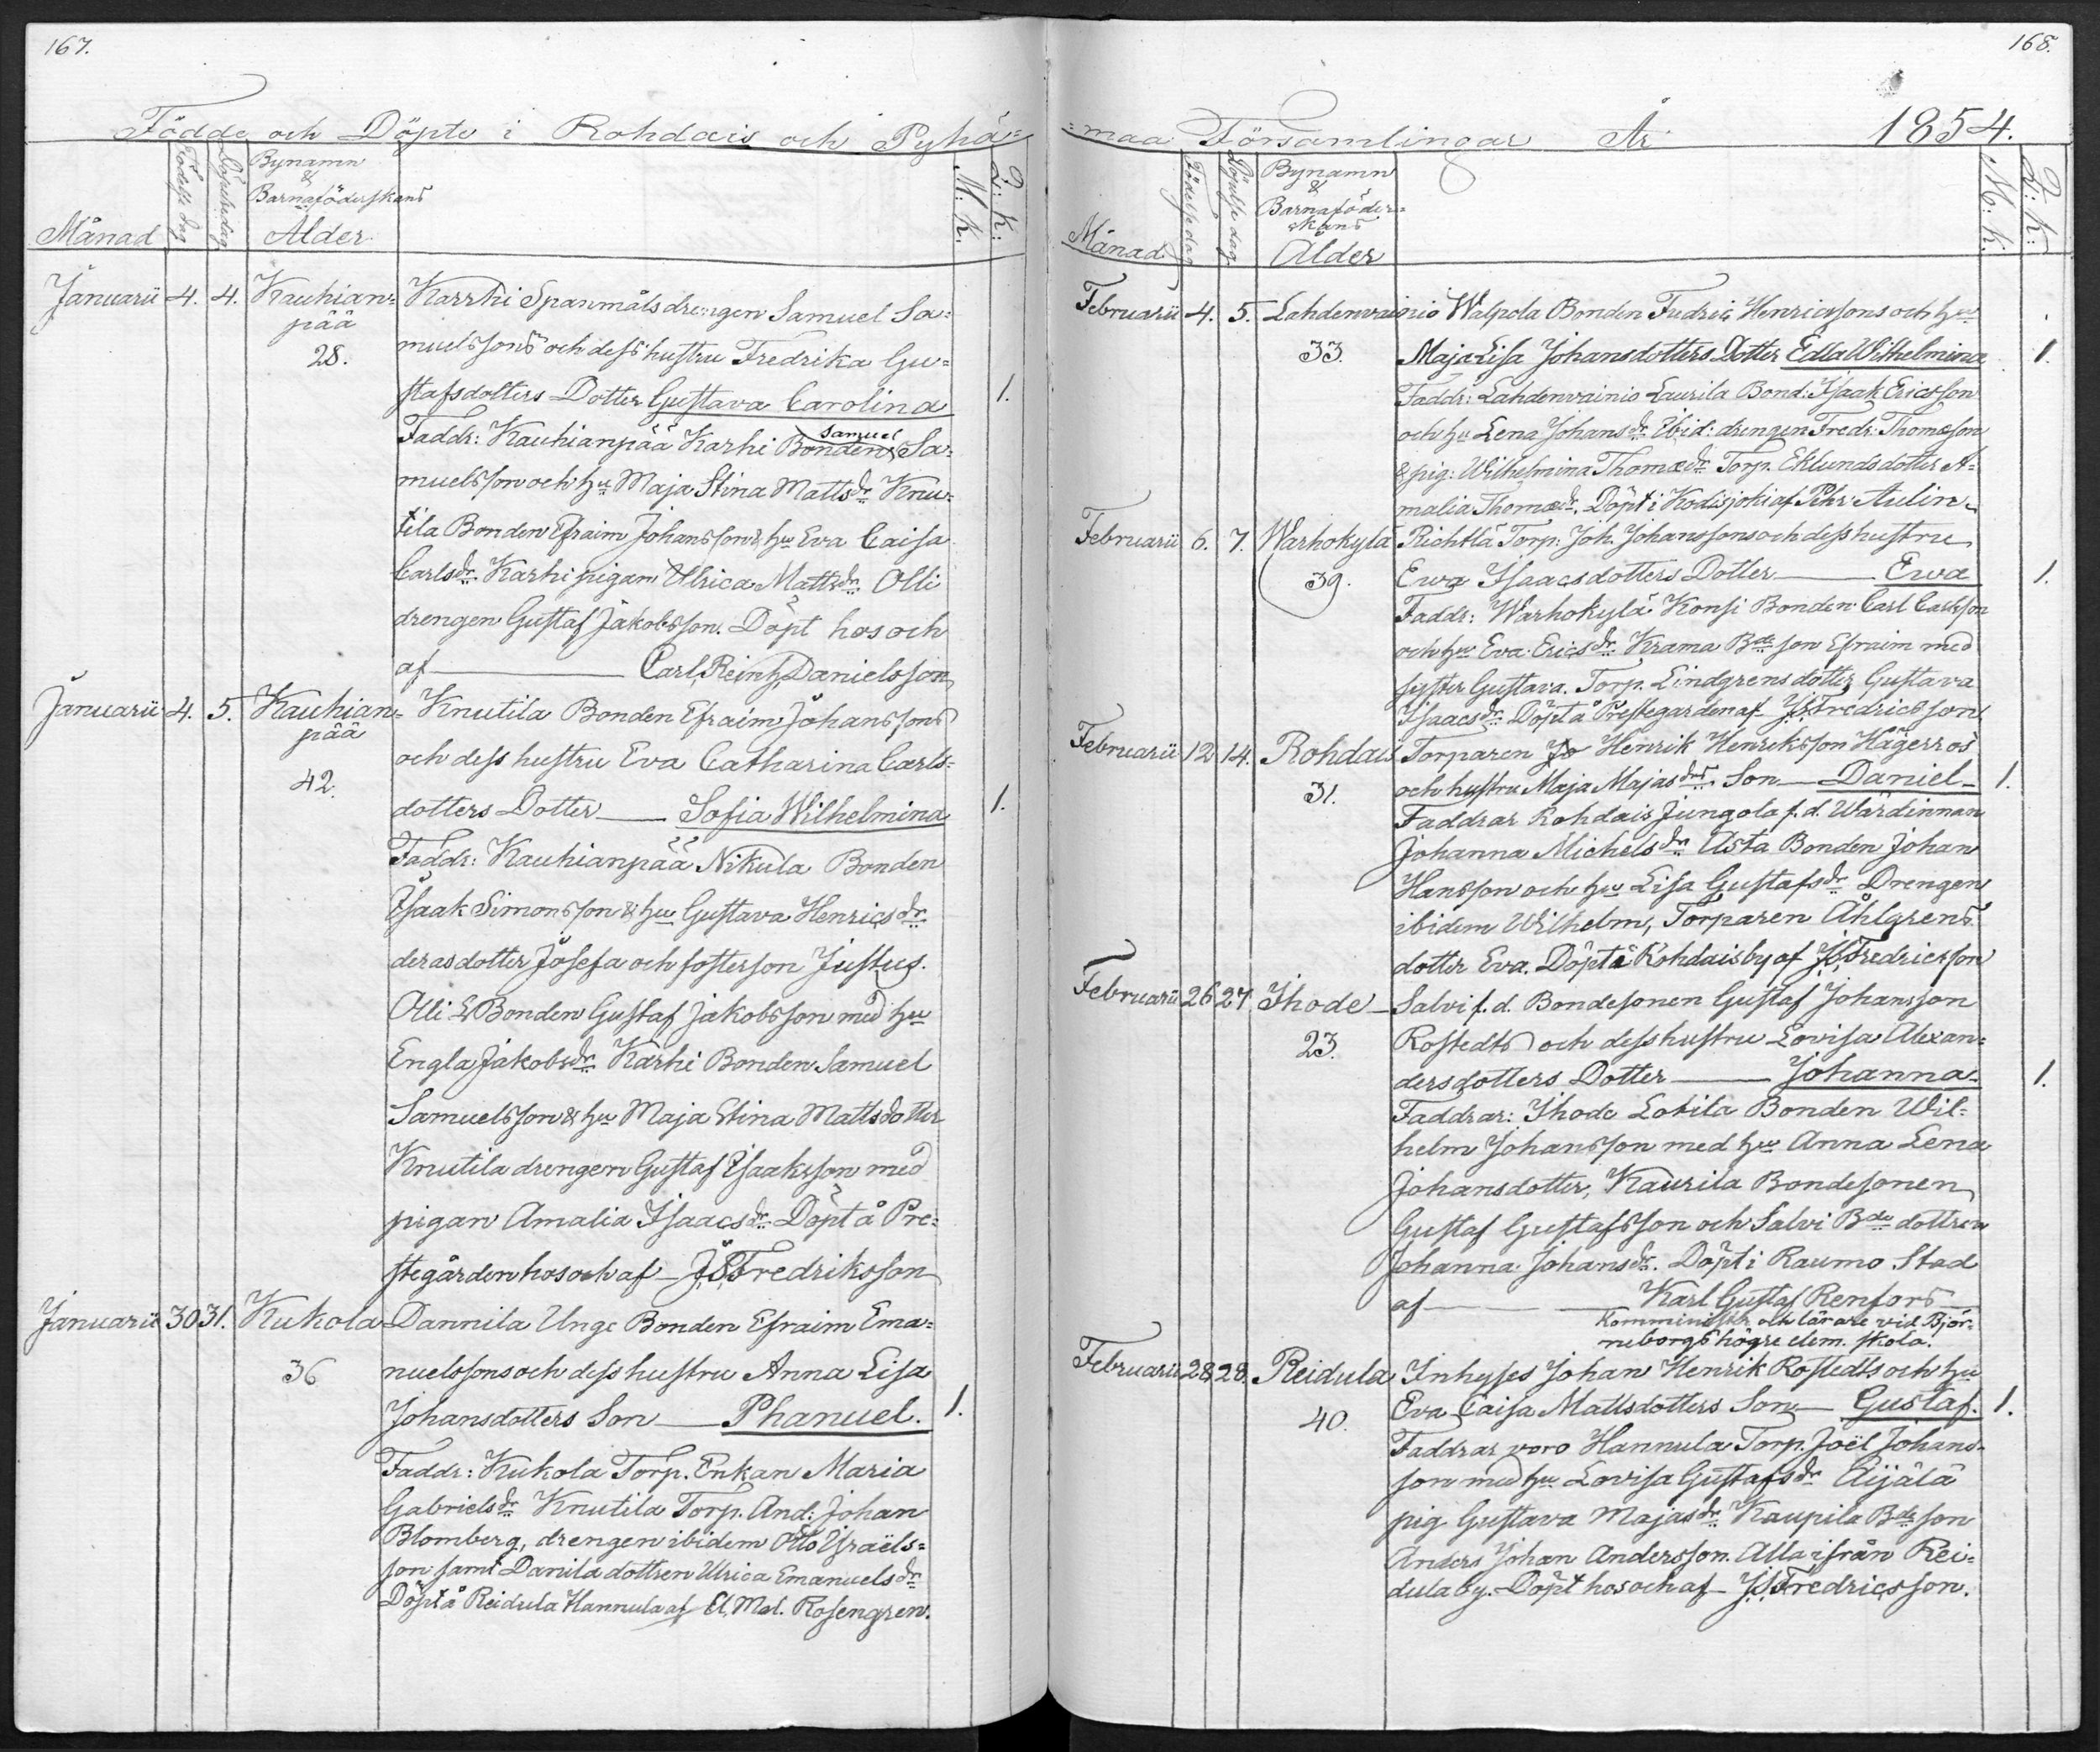 167.
Födde och Döpte i Rohdais och Pyhä=
Månad
Födelse dag
Döpelse dag
Bynamn
&
Barnaföderskans
Ålder
M: K:
Q: K:
Januarii 4. 4. Kauhian= Karrhi Spanmåls drengen Samuel Sa=
pää
28.
muelssons och dess hustru Fredrika Gu=
stafsdotters Dotter Gustava Carolina 1.
Faddr: Kauhianpää Karhi Bonden Samuel Sa=
muelsson och hu Maja Stina Mattsdr Knu=
tila Bonden Efraim Johansson & hu Eva Caisa
Carlsdr Karhi pigan Ulrica Mattsdr Olli
drengen Gustaf Jakobsson. Döpt hos och
af Carl Reinh. Danielsson
Januarii 4. 5. Kauhian= Knutila Bonden Efraim Johanssons
pää
42.
och dess hustru Eva Catharina Carls=
dotters Dotter Sofia Wilhelmina 1.
Faddr: Kauhianpää Nikula Bonden
Isaak Simonsson & hu Gustava Henricsdr
deras dotter Josefa och fosterson Justus.
Olli Bonden Gustaf Jakobsson med hu
Engla Jakobsdr Karhi Bonden Samuel
Samuelsson & hu Maja Stina Mattsdotter
Knutila drengen Gustaf Isaaksson med
pigan Amalia Isaacsdr Döpt å Pre=
stegården hos och af J Fredriksson
Januarii 30 31. Kukola Dannila Unge Bonden Efraim Ema=
36
nuelssons och dess hustru Anna Lisa
Johansdotters Son Phanuel. 1.
Faddr: Kukola Torp. Enkan Maria
Gabrielsdr Knutila Torp. And: Johan
Blomberg, drengen ibidem Otto Israëls=
son samt Danila dottren Ulrica Emanuelsdr
Döpt å Reidula Hannula af El. Mel. Rosengren.
168.
=maa Församlingar År 1854.
Månad
Födelse dag
Döpelse dag
Bynamn
&
Barnaföder=
skans
Ålder
M: K:
Q: K:
Februarii 4. 5. Lahdenvainio Walpola Bonden Fredric Henricssons och hu
33. Maja Lisa Johansdotters Dotter Edla Wilhelmina 1.
Faddr: Lahdenvainio Laurila Bond: Isaak Ericsson
och hu Lena Johansdr Ibid: drengen Fredr: Thomæson
& pig: Wilhelmina Thomædr Torp. Eklunds dotter A=
malia Thomædr. Döpt i Kodisjoki af Pehr Aulin.
Februarii 6. 7. Warhokylä Richtlä Torp: Joh. Johanssons och dess hustru
39. Ewa Isaacsdotters Dotter Ewa 1.
Faddr: Warhokylä Konsi Bonden Carl Carlsson
och hu Eva Ericsdr Krama Bde son Efraim med
syster Gustava. Torp. Lindgrens dotter Gustava
Isaacsdr Döpt å Prestegården af J Fredricsson
Februarii 12 14. Rohdais Torparen Henrik Henriksson Hägerros
31. och hustru Maja Majasdrs Son Daniel 1.
Faddrar Rohdais Jungola f. d. Wärdinnan
Johanna Michelsdr Asta Bonden Johan
Hansson och hu Lisa Gustafsdr Drengen
ibidem Wilhelm, Torparen Åhlgrens
dotter Eva. Döpt å Rohdais by af J Fredricsson
Februarii 26 27. Ihode Salvi f. d. Bondesonen Gustaf Johansson
23. Rostedts och dess hustru Lovisa Alexan=
dersdotters Dotter Johanna 1.
Faddrar: Ihode Lotila Bonden Wil=
helm Johansson med hu Anna Lena
Johansdotter, Kaurila Bondesonen
Gustaf Gustafsson och Salvi Bde dottren
Johanna Johansdr. Döpt i Raumo Stad
af Karl Gustaf Renfors
Komminister och lärare vid Björ=
neborgs högre elem. skola.
Februarii 28 28. Reidula Inhyses Johan Henrik Rostedts och hu
40. Eva Caisa Mattsdotters Son Gustaf. 1.
Faddrar voro Hannula Torp. Joël Johans=
son med hu Lovisa Gustafsdr Äijälä
pig Gustava Majasdr Kaupila Bde son
Anders Johan Andersson. Alla ifrån Rei=
dula by. Döpt hos och af J Fredricsson.